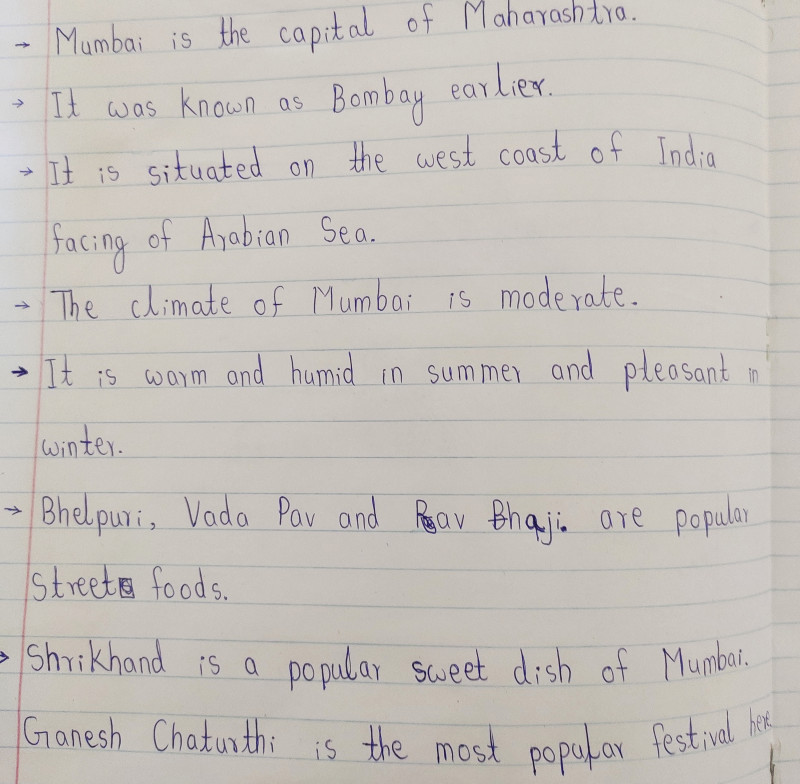 → Mumbai is the capital of Maharashtra.
→ It was known as Bombay earlier.
→ It is situated on the west coast of India
facing of Arabian Sea.
→ The climate of Mumbai is moderate.
→ It is warm and humid in summer and pleasant in
winter.
→ Bhelpuri, Vada Pav and Pav Bhaji are popular
street foods.
→ Shrikhand is a popular sweet dish of Mumbai.
Ganesh Chaturthi is the most popular festival here